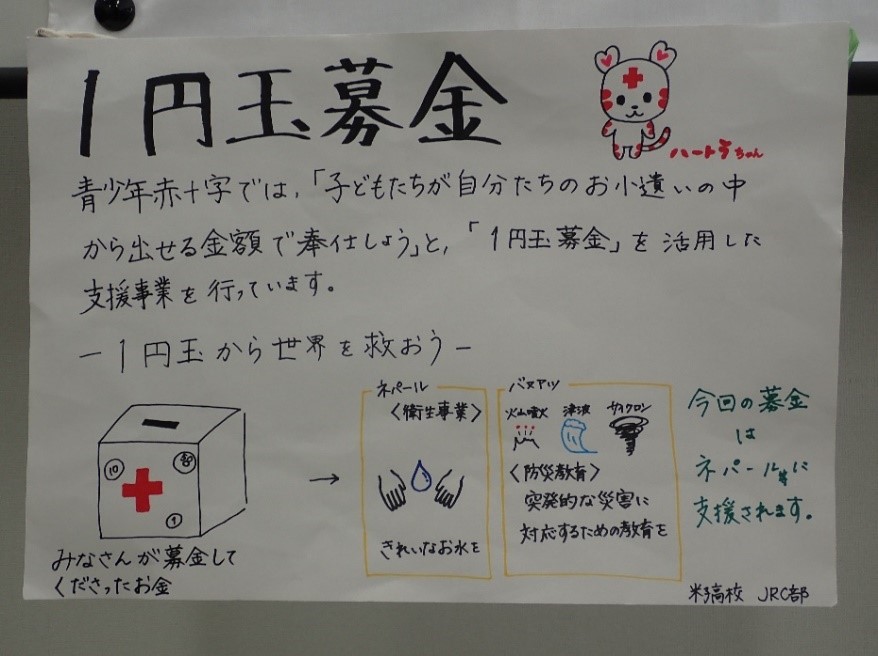 1円玉募金
ハートラちゃん
青少年赤十字では、「子どもたちが自分たちのお小遣いの中
から出せる金額で奉仕しよう」と、「1円玉募金」を活用した
支援事業を行っています。
－1円玉から世界を救おう－
10
1
みなさんが募金して
くださったお金
→
ネパール
〈衛生事業〉
きれいなお水を
バヌアツ
火山噴火 津波 サイクロン
〈防災教育〉
突発的な災害に
対応するための教育を
今回の募金
は
ネパール等に
支援されます。
高校 JRC部